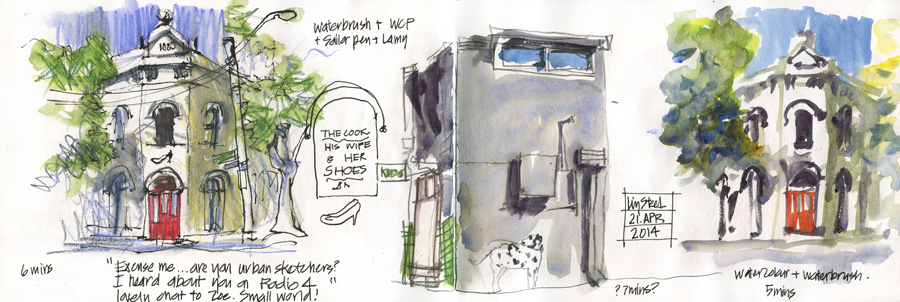 1883
waterbrush + WCP
+ Sailor pen + Lamy
THE COOK
HIS WIFE
& HER
SHOES
6 mins
"Excuse me... are you urban sketchers?
I heard about you on Radio 4"
lovely chat to Zoe. Small world!
21. APR
2014
? 7 mins?
watercolour + waterbrush.
5 mins